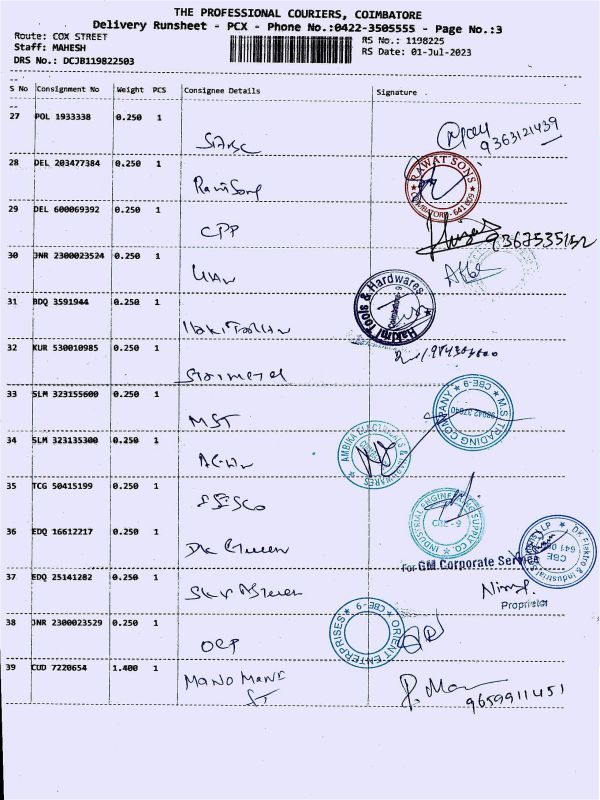 THE PROFESSIONAL COURIERS, COIMBATORE
Delivery Runsheet - PCX - Phone No.:0422-3505555 - Page No.:3
Route: COX STREET
RS No.: 1198225
Staff: MAHESH
RS Date: 01-Jul-2023
DRS No.: DCJB119822503
S No Consignment No Weight PCS Consignee Details Signature
27 POL 1933338 0.250 1
9363121439
28 DEL 203477384 0.250 1
RAWAT SONS
COIMBATORE - 641 009
29 DEL 600069392 0.250 1
CPP
9367535152
30 JNR 2300023524 0.250 1
31 BDQ 3591944 0.250 1
Hakimi Tools & Hardwares
32 KUR 530010985 0.250 1
33 SLM 323155600 0.250 1
MST
M.S TRADING COMPANY
CBE-9
34 SLM 323135300 0.250 1
AMBIKA ELECTRICALS & HARDWARES
35 TCG 50415199 0.250 1
INDUSTRIAL ENGINEERING SUPPLY CO.
CBE - 9
36 EDQ 16612217 0.250 1
DK Elektro & Industrial
CBE
For GM Corporate Service
37 EDQ 25141282 0.250 1
Proprietor
38 JNR 2300023529 0.250 1
OEP
ORIENT ENTERPRISES
CBE-9
39 CUD 7220654 1.400 1
MANO MANI
ST
P. Man
9659911451